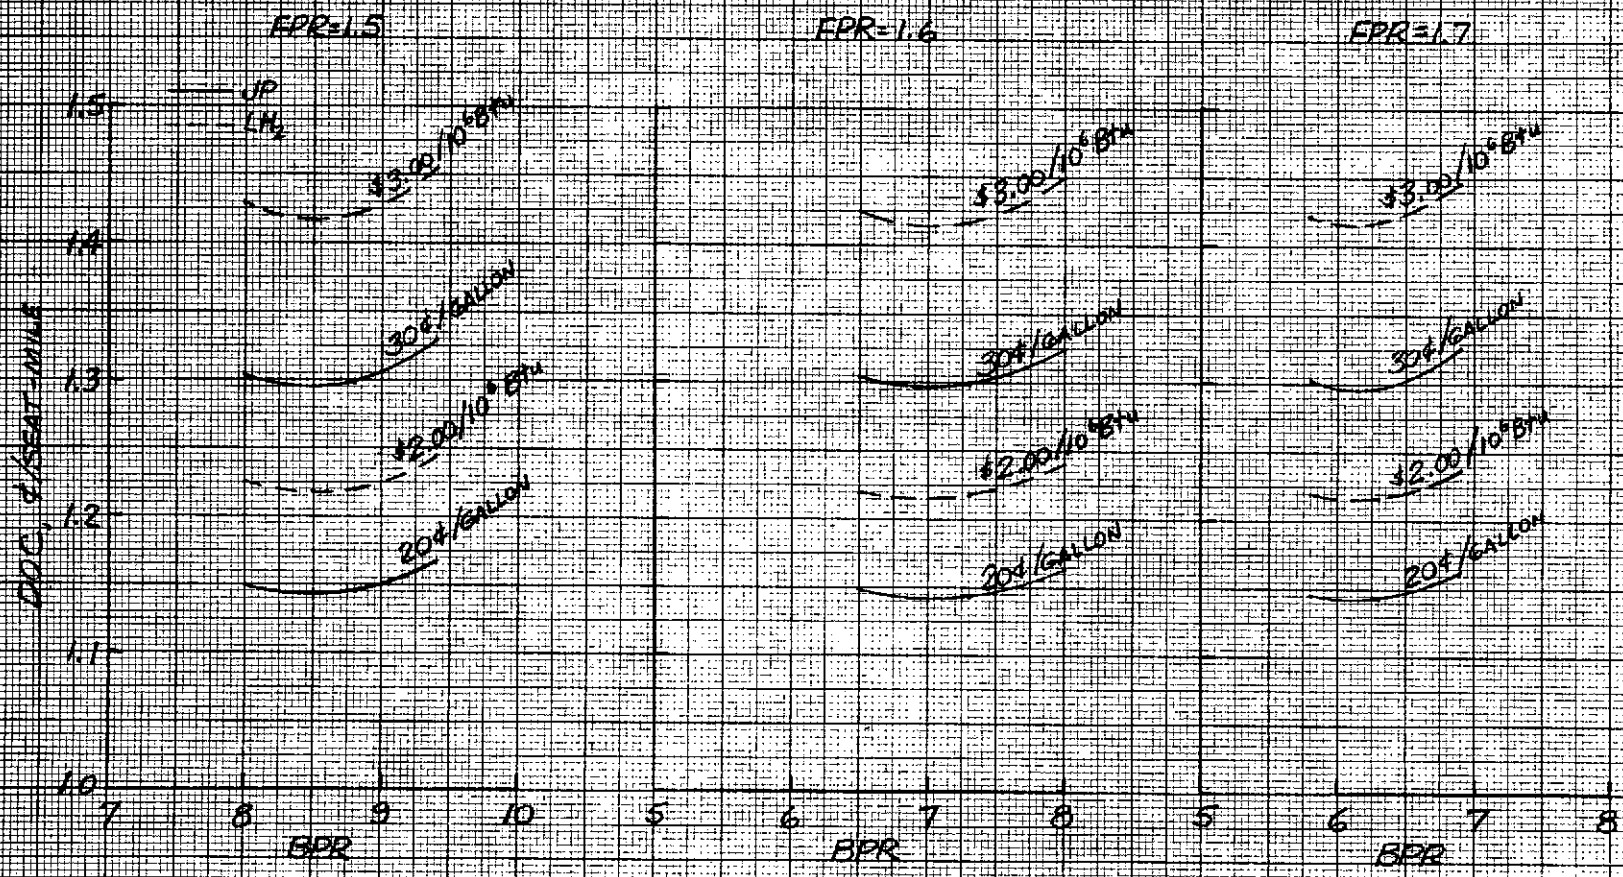 FPR=1.5
FPR=1.6
FPR=1.7
JP
LH₂
1.5
1.4
1.3
1.2
1.1
1.0
DOC, ¢/SEAT-MILE
$3.00/10⁶Btu
30¢/GALLON
$2.00/10⁶Btu
20¢/GALLON
$3.00/10⁶Btu
30¢/GALLON
$2.00/10⁶Btu
20¢/GALLON
$3.00/10⁶Btu
30¢/GALLON
$2.00/10⁶Btu
20¢/GALLON
7 8 9 10
5 6 7 8
5 6 7 8
BPR
BPR
BPR